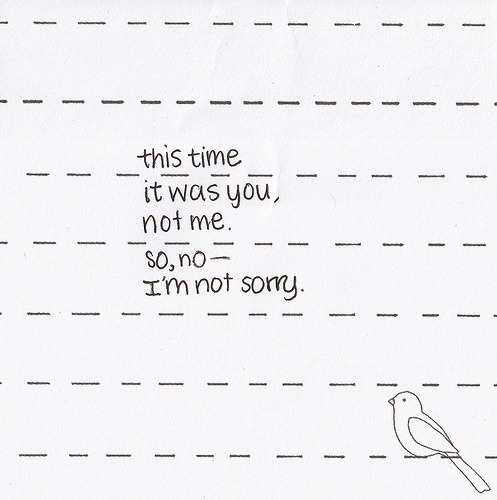 this time
it was you,
not me.
so, no—
I'm not sorry.